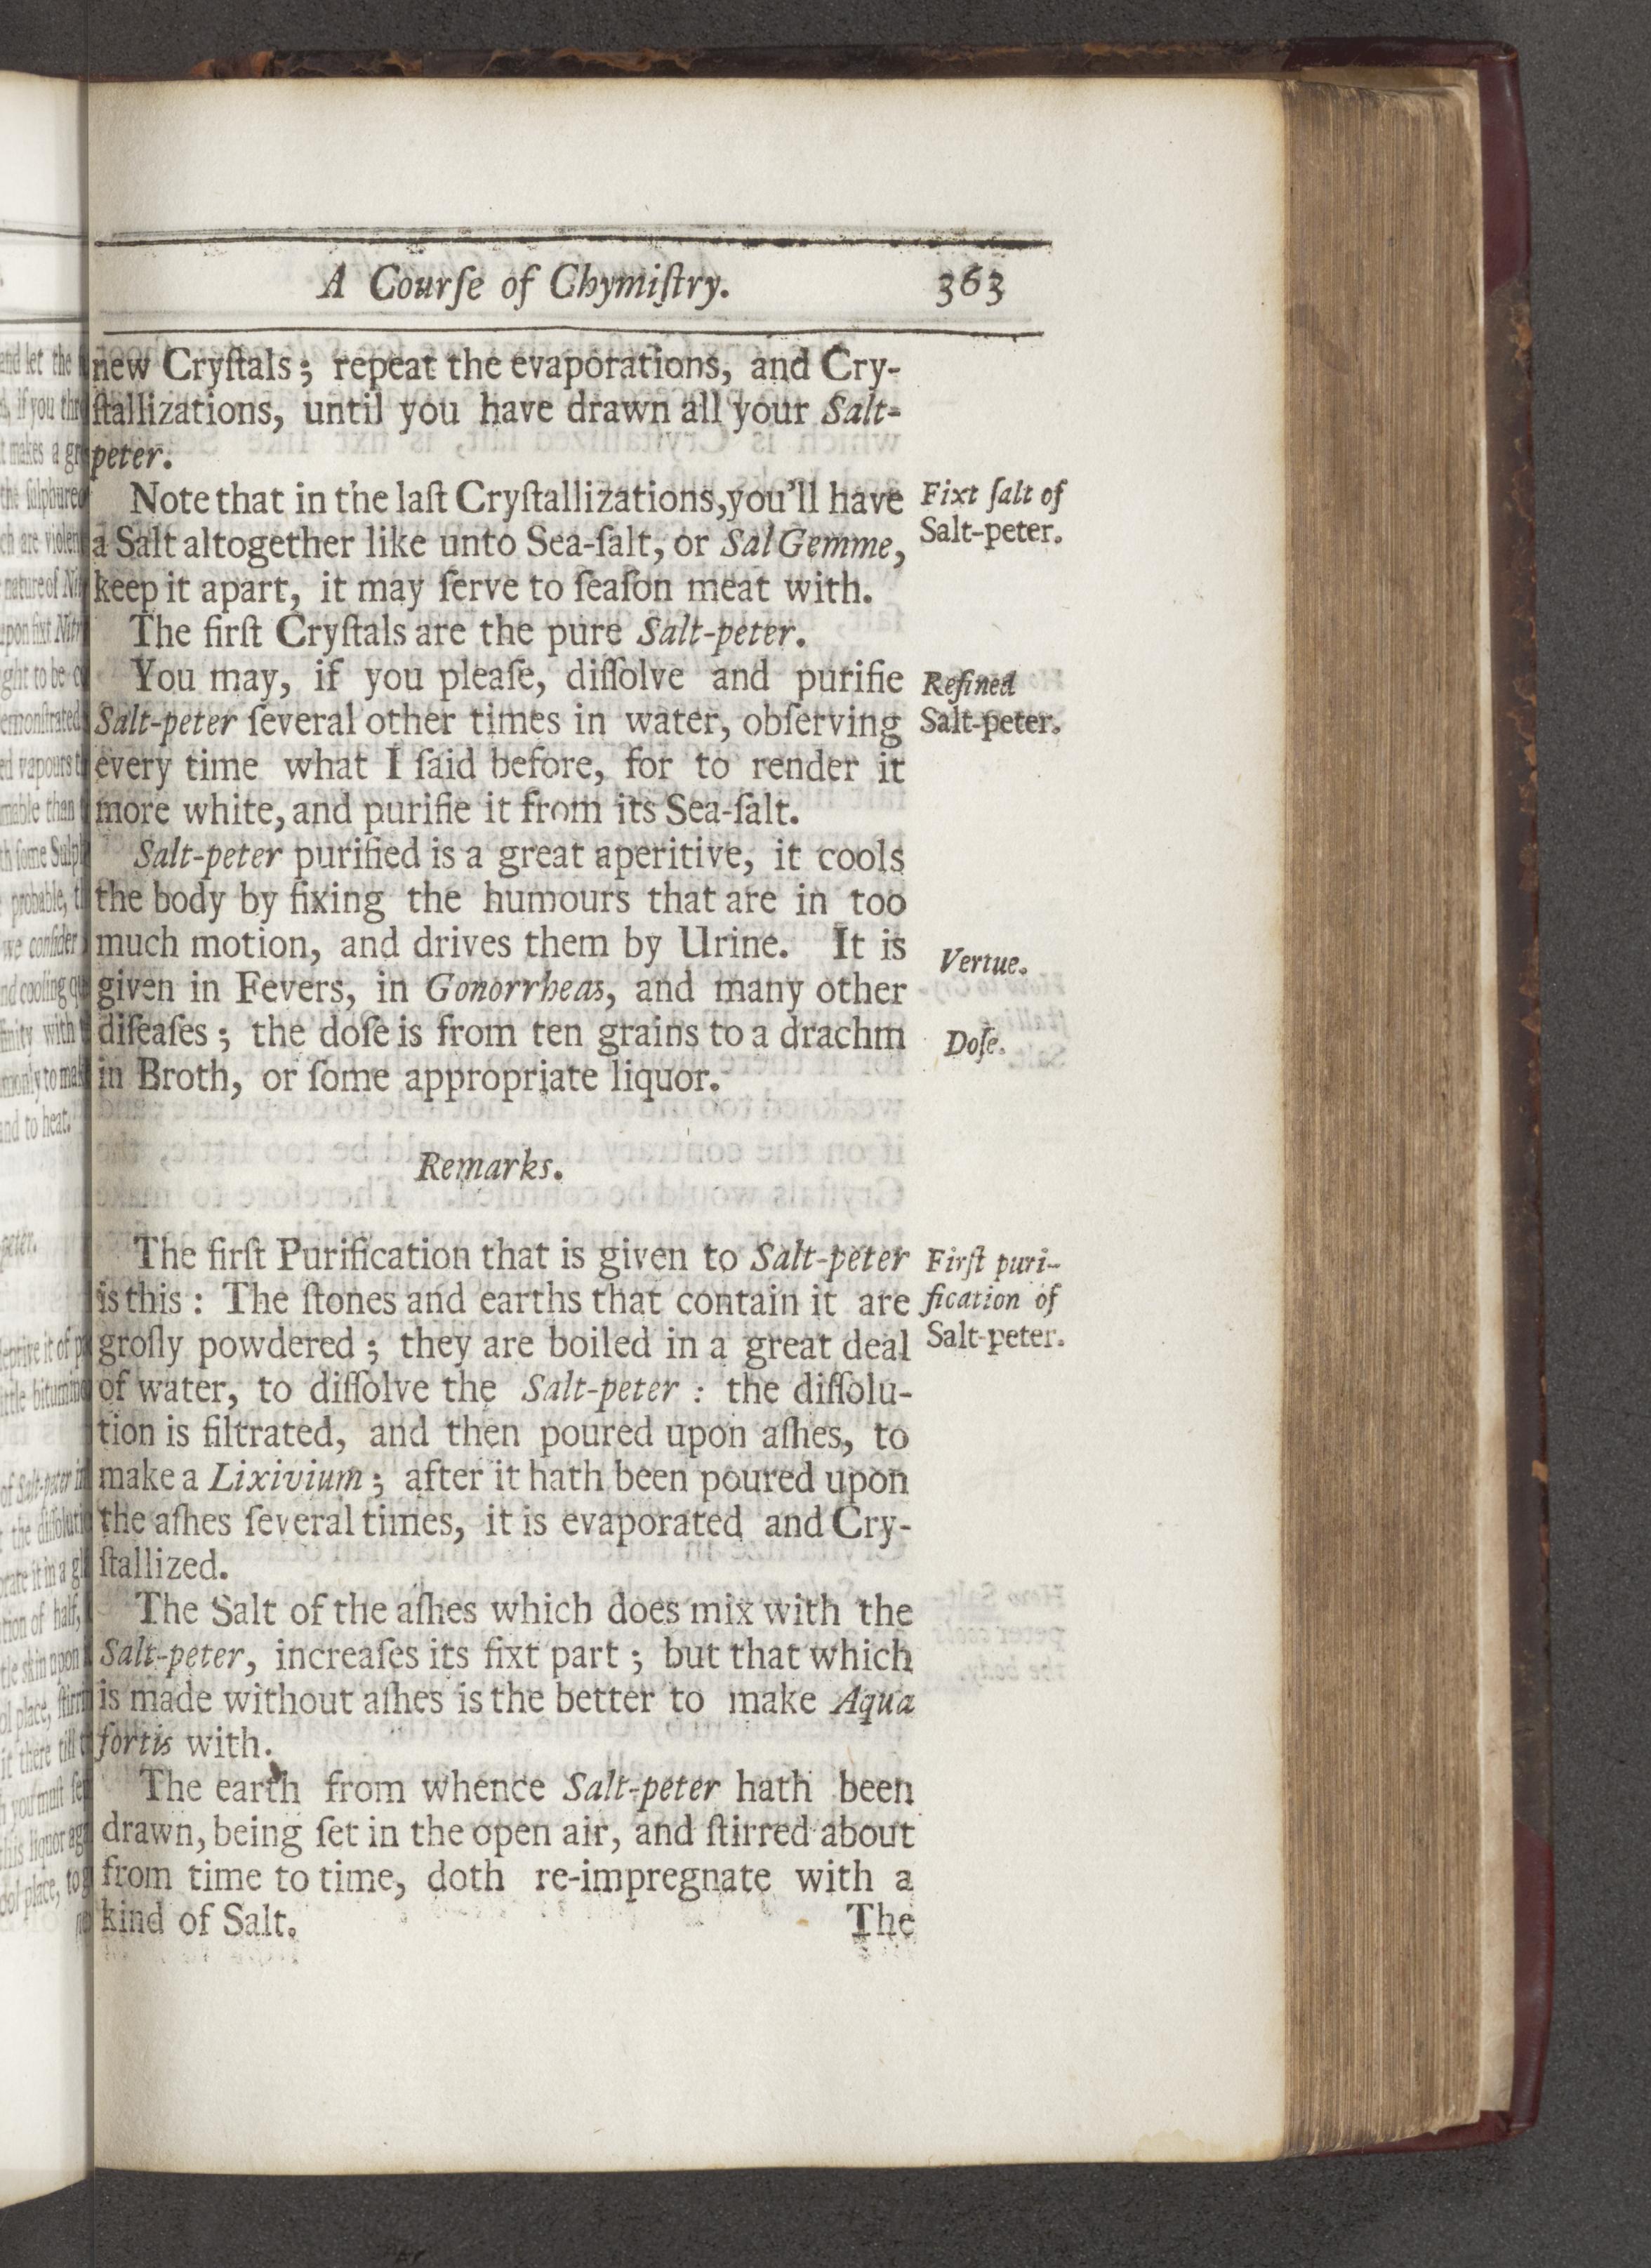 A Courſe of Chymiſtry. 363
new Cryſtals; repeat the evaporations, and Cry-
ſtallizations, until you have drawn all your Salt-
peter.
Note that in the laſt Cryſtallizations, you'll have
a Salt altogether like unto Sea-ſalt, or Sal Gemme,
keep it apart, it may ſerve to ſeaſon meat with.
Fixt ſalt of
Salt-peter.
The firſt Cryſtals are the pure Salt-peter.
You may, if you pleaſe, diſſolve and purifie
Salt-peter ſeveral other times in water, obſerving
every time what I ſaid before, for to render it
more white, and purifie it from its Sea-ſalt.
Refined
Salt-peter.
Salt-peter purified is a great aperitive, it cools
the body by fixing the humours that are in too
much motion, and drives them by Urine. It is
given in Fevers, in Gonorrheas, and many other
diſeaſes; the doſe is from ten grains to a drachm
in Broth, or ſome appropriate liquor.
Vertue.
Doſe.
Remarks.
The firſt Purification that is given to Salt-peter
is this: The ſtones and earths that contain it are
groſly powdered; they are boiled in a great deal
of water, to diſſolve the Salt-peter: the diſſolu-
tion is filtrated, and then poured upon aſhes, to
make a Lixivium; after it hath been poured upon
the aſhes ſeveral times, it is evaporated and Cry-
ſtallized.
Firſt puri-
fication of
Salt-peter.
The Salt of the aſhes which does mix with the
Salt-peter, increaſes its fixt part; but that which
is made without aſhes is the better to make Aqua
fortis with.
The earth from whence Salt-peter hath been
drawn, being ſet in the open air, and ſtirred about
from time to time, doth re-impregnate with a
kind of Salt. The